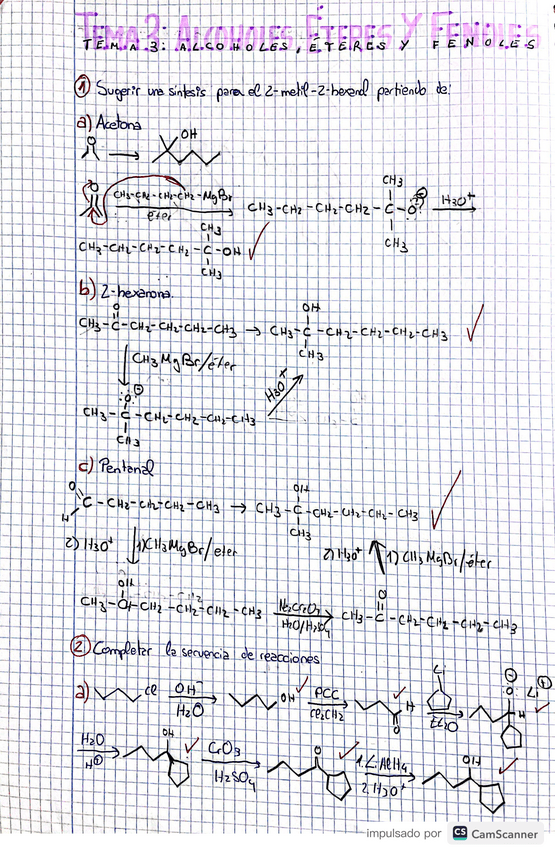 TEMA 3: ALCOHOLES, ÉTERES Y FENOLES
TEMA 3: ALCOHOLES, ÉTERES Y FENOLES
① Sugerir una síntesis para el 2-metil-2-hexanol partiendo de:
a) Acetona
O → OH
O CH3-CH2-CH2-CH2-MgBr
éter
CH3-CH2-CH2-CH2-C-O⊖
CH3
CH3
H3O+
CH3-CH2-CH2-CH2-C-OH
CH3
CH3
b) 2-hexanona.
O OH
CH3-C-CH2-CH2-CH2-CH3 → CH3-C-CH2-CH2-CH2-CH3
CH3
CH3MgBr/éter
H3O+
O⊖
CH3-C-CH2-CH2-CH2-CH3
CH3
c) Pentanal
O OH
H C-CH2-CH2-CH2-CH3 → CH3-C-CH2-CH2-CH2-CH3
CH3
2) H3O+ 1) CH3MgBr/éter 2) H3O+ 1) CH3MgBr/éter
OH O
CH3-CH-CH2-CH2-CH2-CH3 Na2Cr2O7 CH3-C-CH2-CH2-CH2-CH3
H2O/H2SO4
② Completar la secuencia de reacciones
a) Cl OH- OH PCC H Li O⊖ Li⊕
H2O Cl2CH2 O Et2O H
H2O OH CrO3 O 1. LiAlH4 OH
H⊕ H2SO4 2. H3O+
impulsado por CS CamScanner